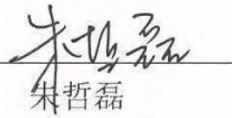 朱哲磊
朱哲磊